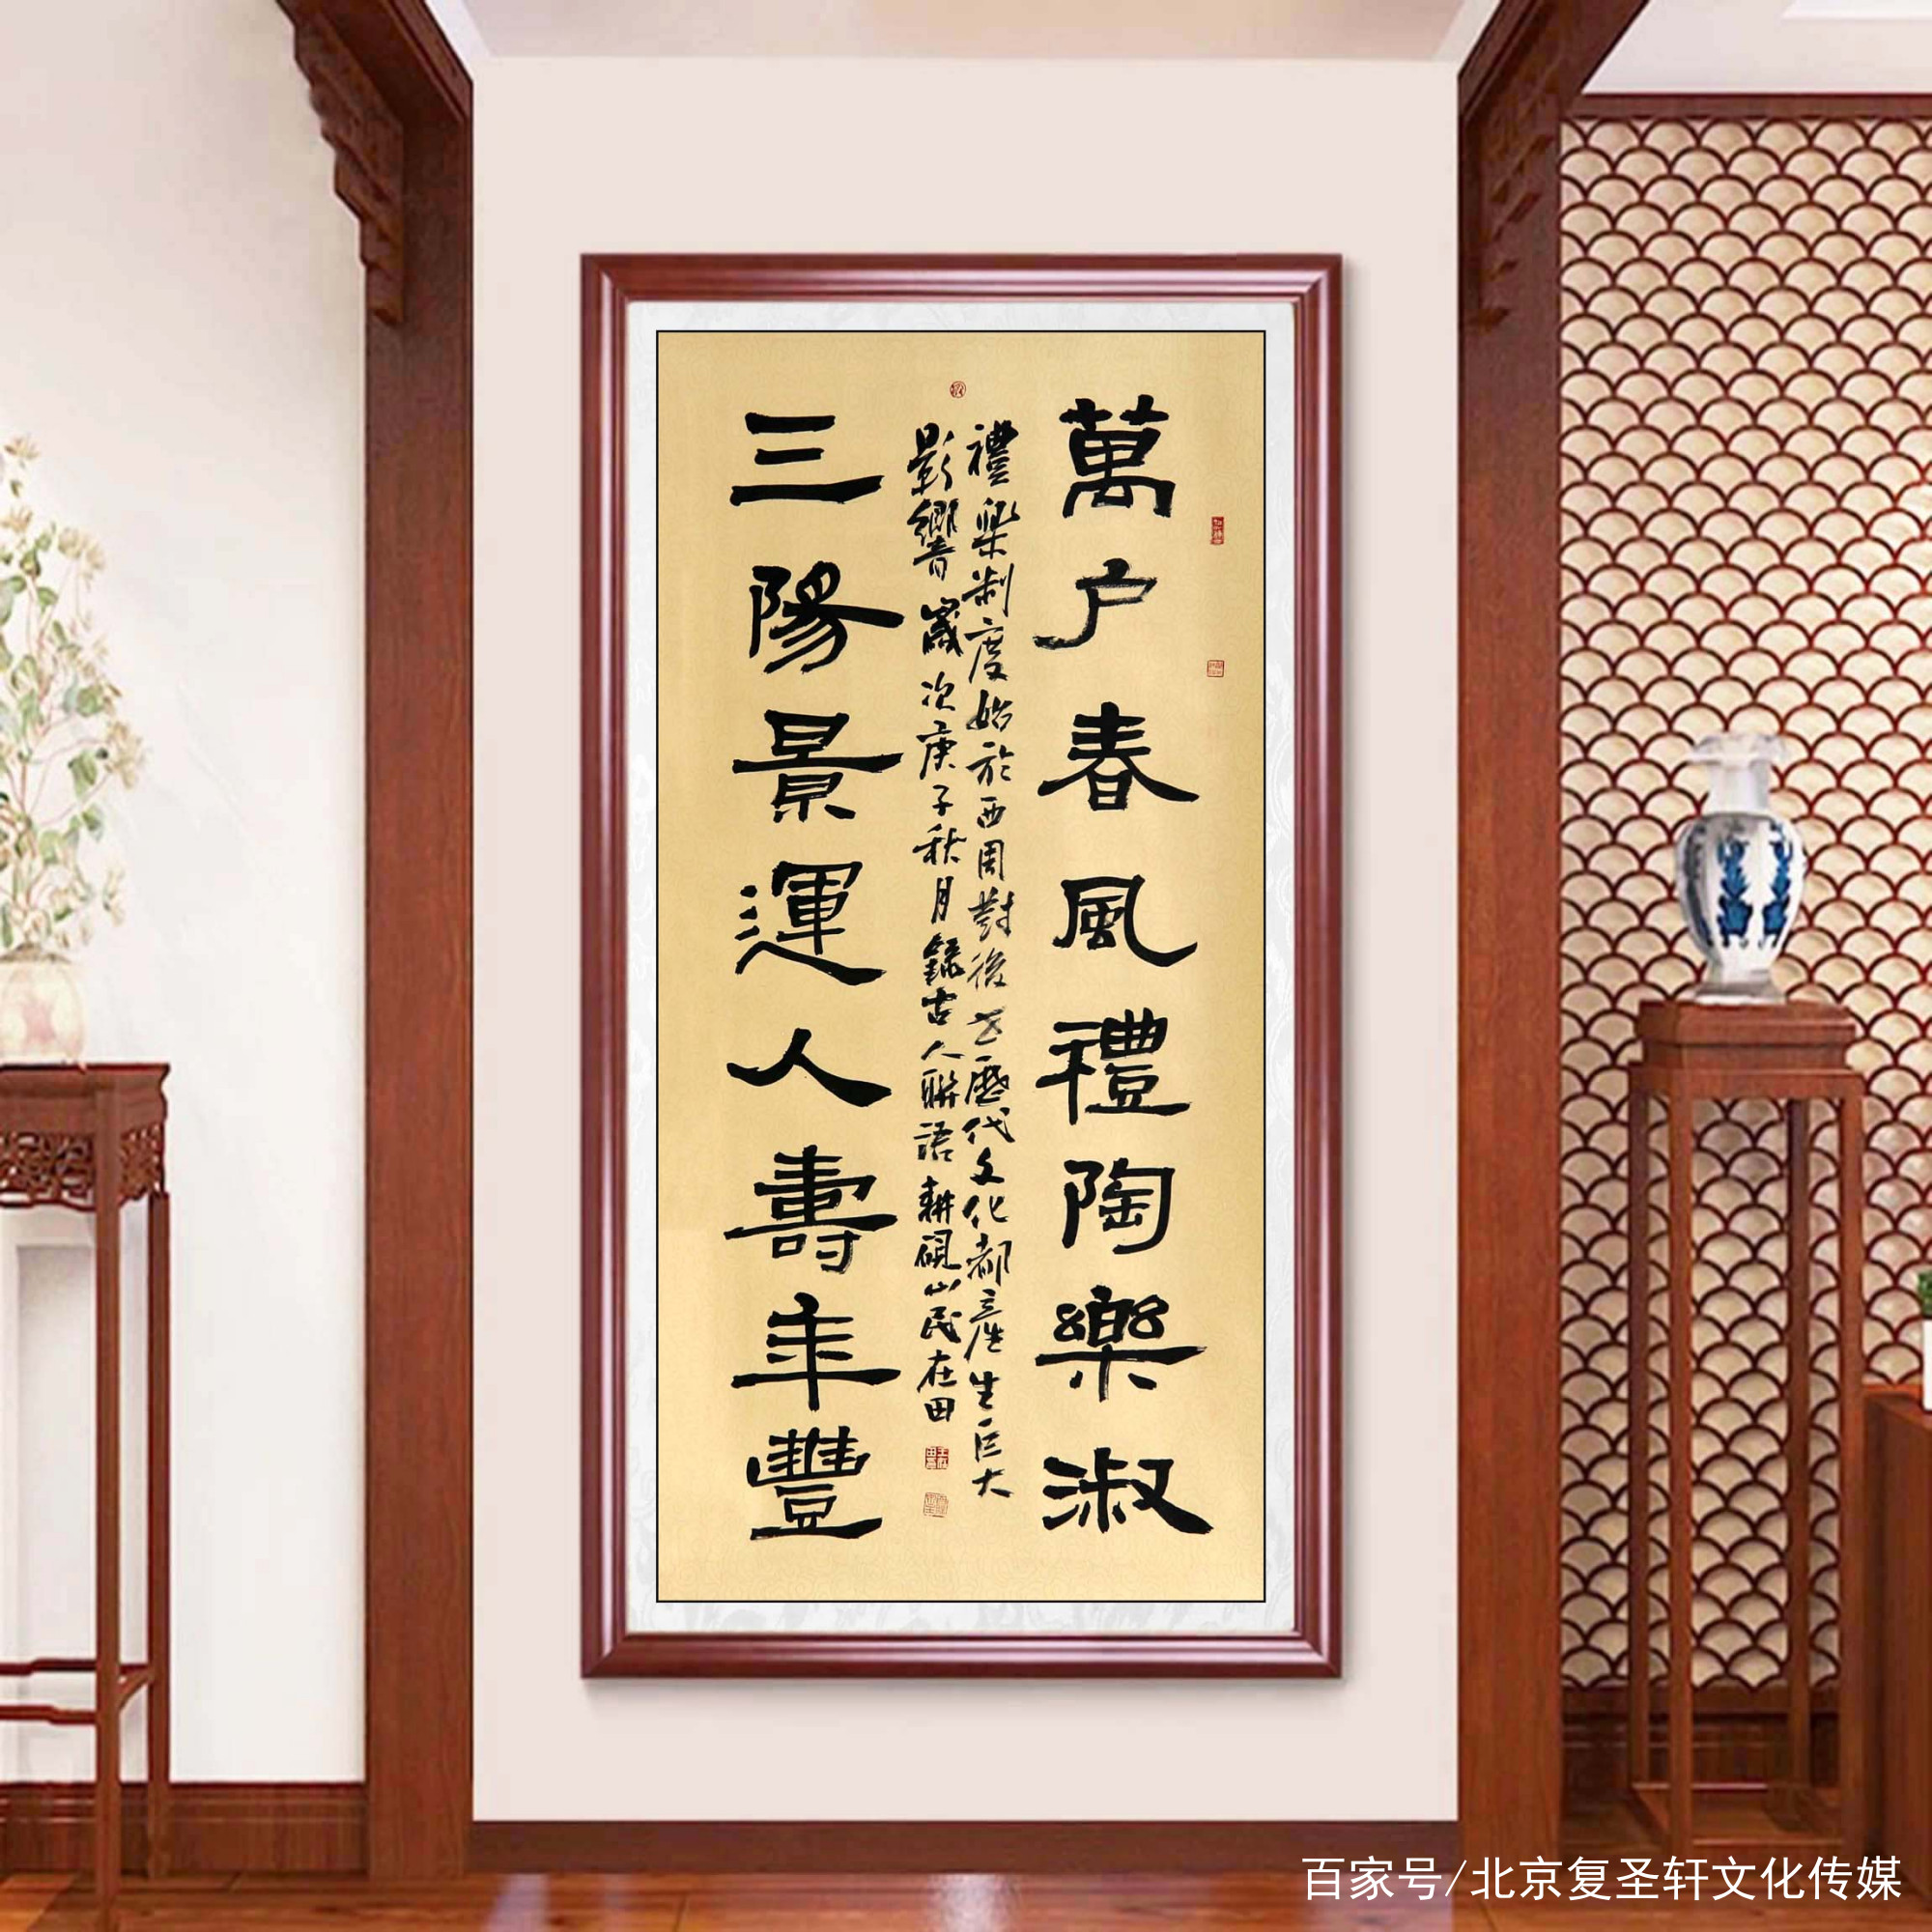 萬户春風禮陶樂淑
禮樂制度始於西周對後世歷代文化都產生巨大
影響歲次庚子秋月錄古人聯語耕硯山民在田
三陽景運人壽年豐
百家号/北京复圣轩文化传媒